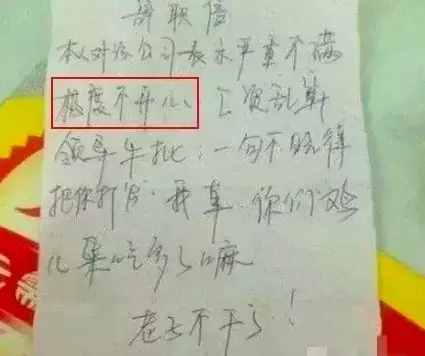 辞职信
本人对该公司表示严重不满
极度不开心、工资乱算
领导牛批：一句不晓得
把你打发．我草．你们双
儿果吃多了嘛
老子不干了！